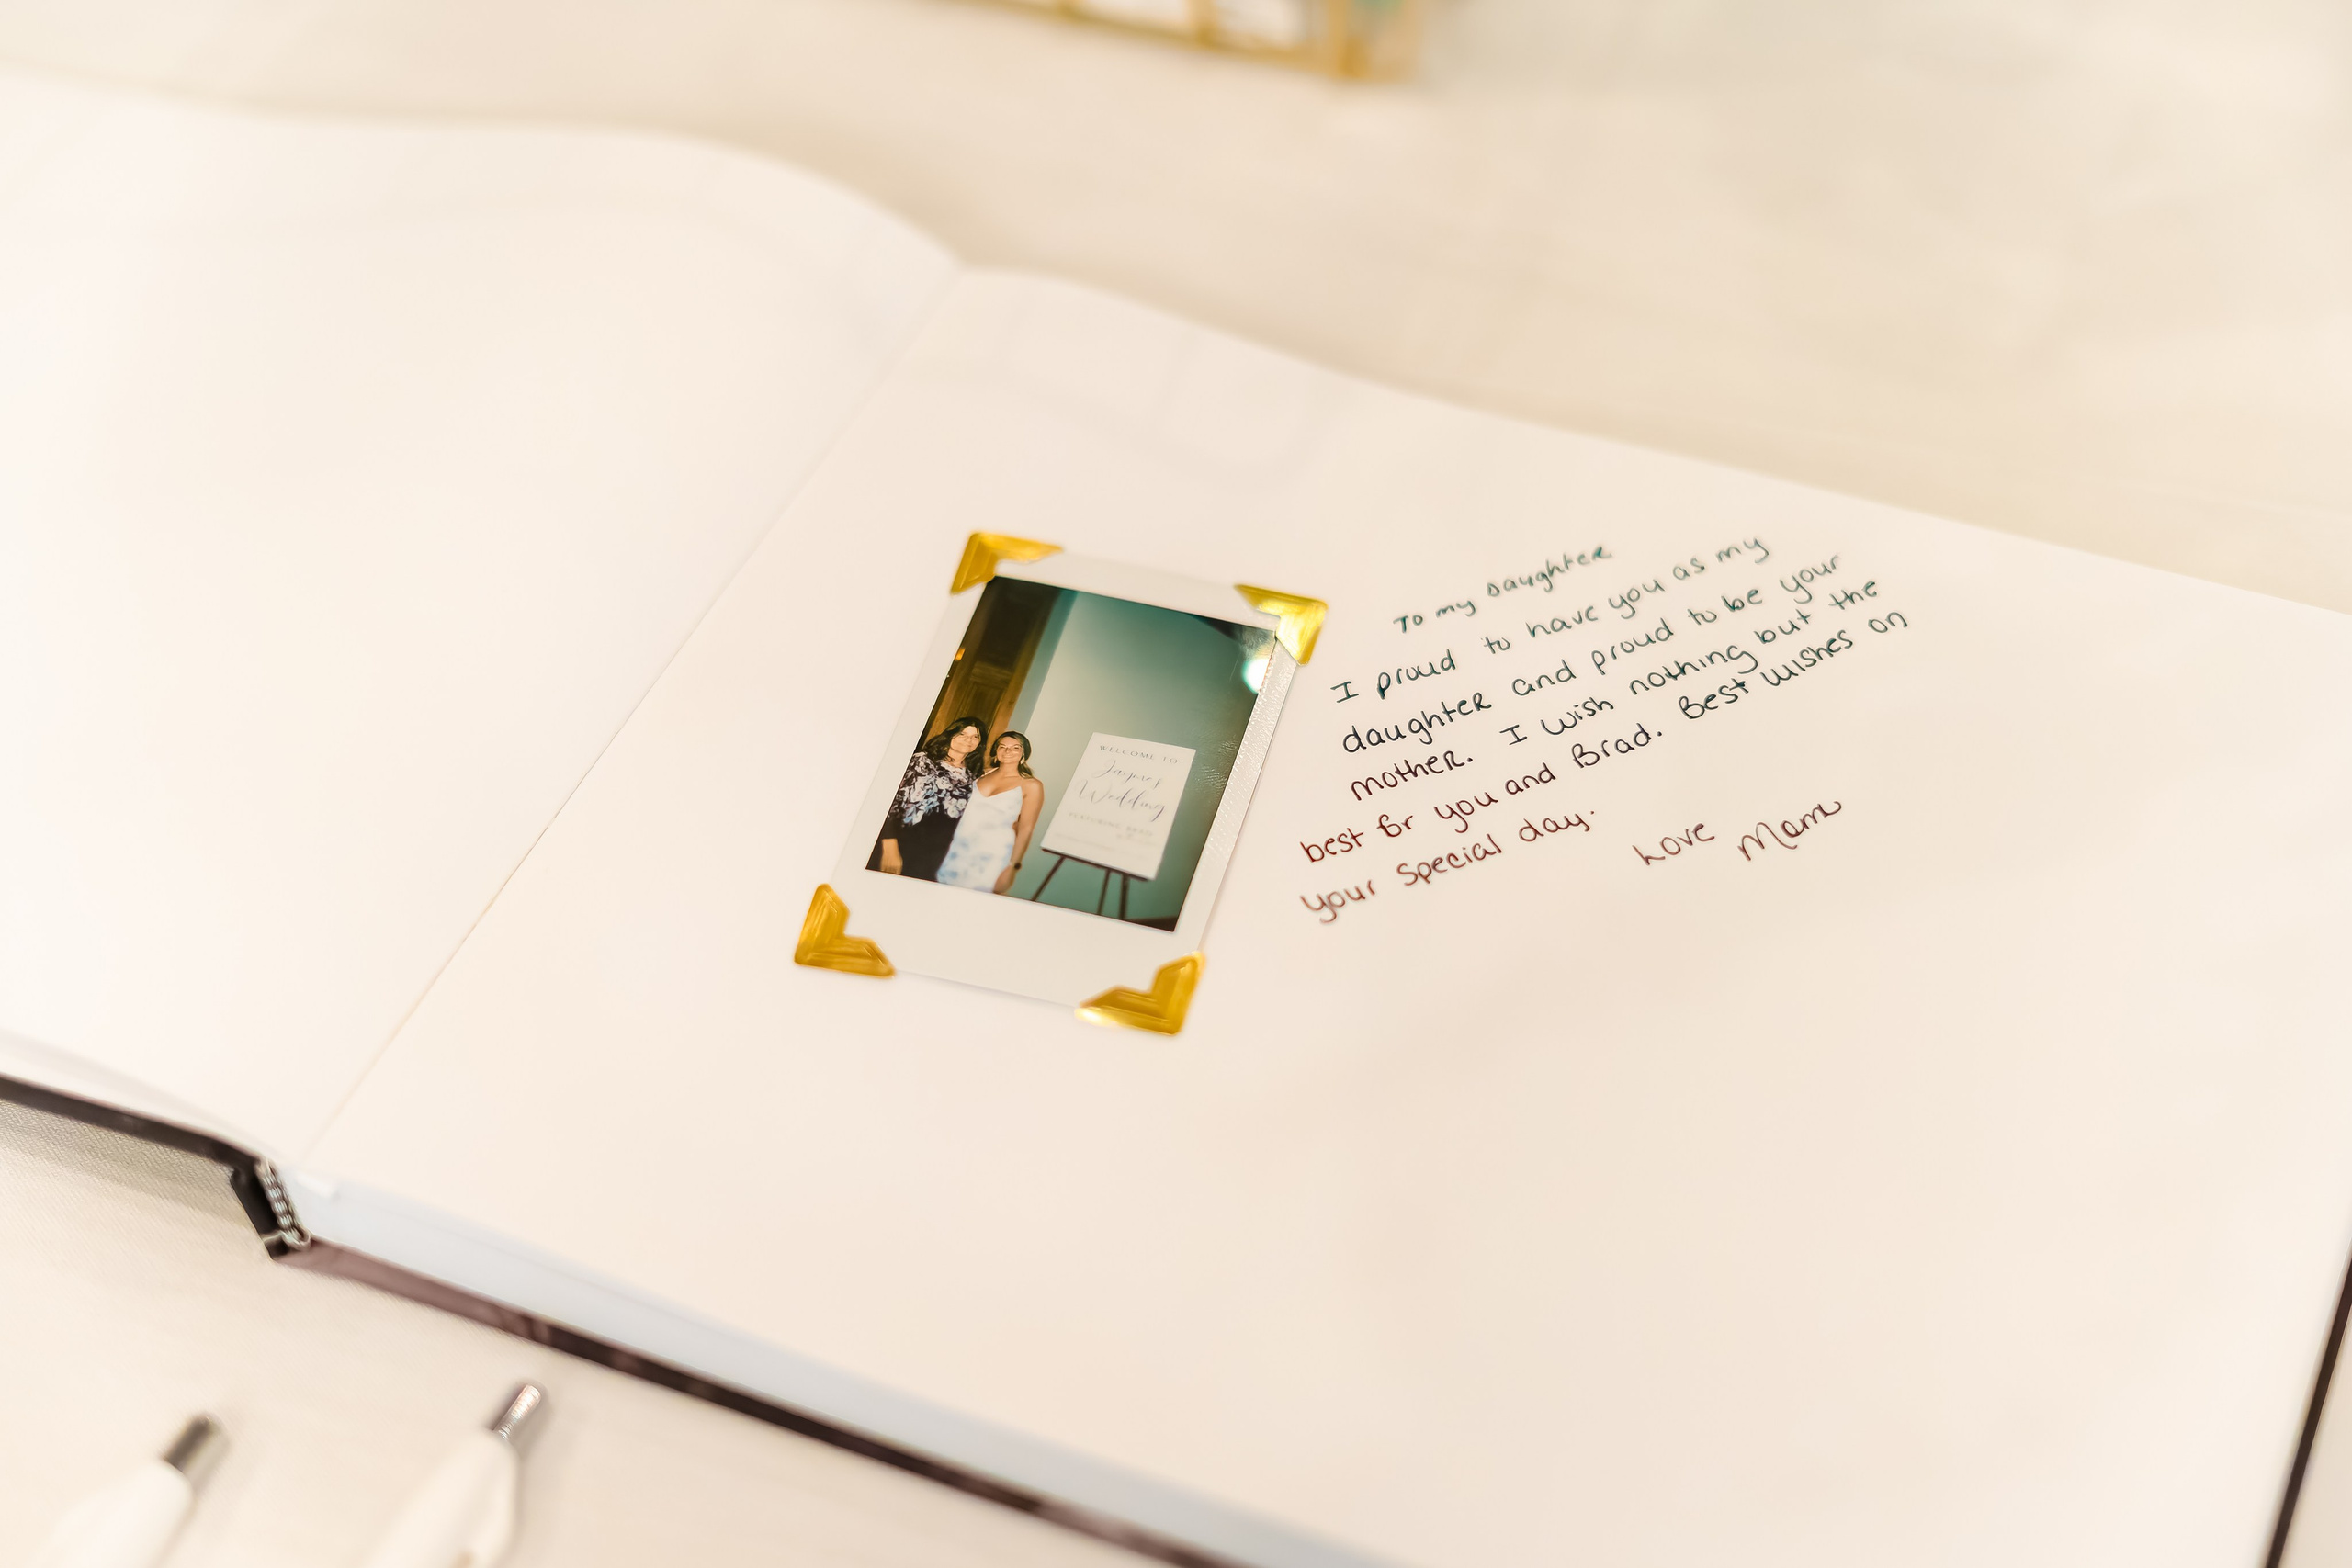 WELCOME TO
Jayme's
Wedding
FEATURING BRAD
To my Daughter
I proud to have you as my
daughter and proud to be your
mother. I wish nothing but the
best for you and Brad. Best wishes on
your special day.
Love Mom